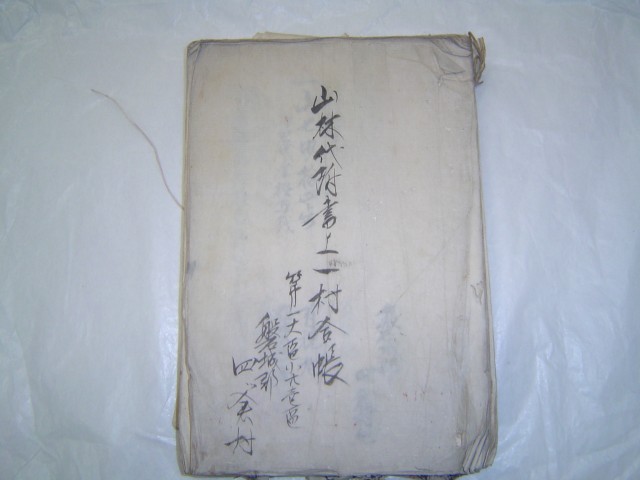 山林代附書上一村合帳
第一大区小九壱区
磐城郡
四ッ倉村